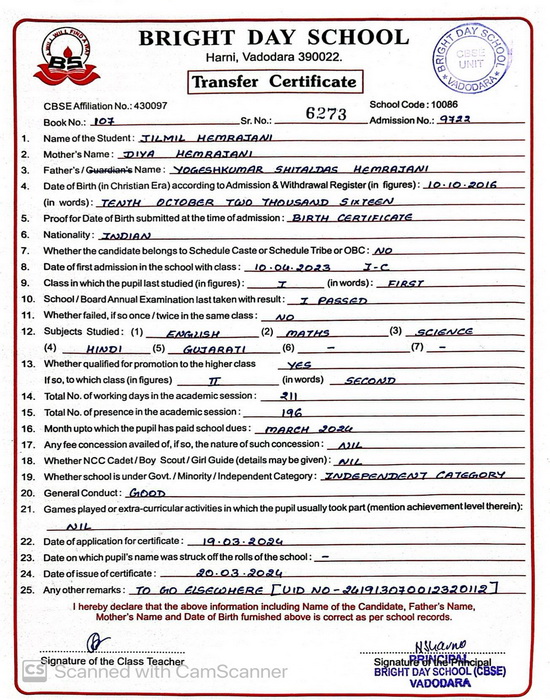 A WILL WILL FIND A WAY
BS
BRIGHT DAY SCHOOL
Harni, Vadodara 390022.
Transfer Certificate
BRIGHT DAY SCHOOL
CBSE
UNIT
VADODARA
CBSE Affiliation No.: 430097 School Code : 10086
Book No.: 107 Sr. No.: 6273 Admission No.: 9722
1. Name of the Student : JILMIL HEMRAJANI
2. Mother's Name : DIYA HEMRAJANI
3. Father's / Guardian's Name : YOGESHKUMAR SHITALDAS HEMRAJANI
4. Date of Birth (in Christian Era) according to Admission & Withdrawal Register (in figures) : 10-10-2016
(in words) : TENTH OCTOBER TWO THOUSAND SIXTEEN
5. Proof for Date of Birth submitted at the time of admission : BIRTH CERTIFICATE
6. Nationality : INDIAN
7. Whether the candidate belongs to Schedule Caste or Schedule Tribe or OBC : NO
8. Date of first admission in the school with class : 10.04.2023 I-C
9. Class in which the pupil last studied (in figures) : I (in words) : FIRST
10. School / Board Annual Examination last taken with result : I PASSED
11. Whether failed, if so once / twice in the same class : NO
12. Subjects Studied : (1) ENGLISH (2) MATHS (3) SCIENCE
(4) HINDI (5) GUJARATI (6) - (7) -
13. Whether qualified for promotion to the higher class YES
If so, to which class (in figures) II (in words) SECOND
14. Total No. of working days in the academic session : 211
15. Total No. of presence in the academic session : 196
16. Month upto which the pupil has paid school dues : MARCH 2024
17. Any fee concession availed of, if so, the nature of such concession : NIL
18. Whether NCC Cadet / Boy Scout / Girl Guide (details may be given) : NIL
19. Whether school is under Govt. / Minority / Independent Category : INDEPENDENT CATEGORY
20. General Conduct : GOOD
21. Games played or extra-curricular activities in which the pupil usually took part (mention achievement level therein):
NIL
22. Date of application for certificate : 19.03.2024
23. Date on which pupil's name was struck off the rolls of the school : -
24. Date of issue of certificate : 20.03.2024
25. Any other remarks : TO GO ELSEWHERE [UID NO - 241913070012320112]
I hereby declare that the above information including Name of the Candidate, Father's Name,
Mother's Name and Date of Birth furnished above is correct as per school records.
Signature of the Class Teacher Signature of the Principal
PRINCIPAL
BRIGHT DAY SCHOOL (CBSE)
VADODARA
CS Scanned with CamScanner